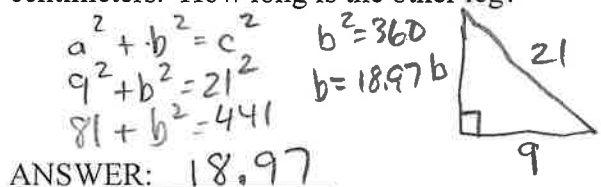 centimeters. How long is the other leg?
a² + b² = c²
9² + b² = 21²
81 + b² = 441
b² = 360
b = 18.97
b
21
9
ANSWER: 18.97